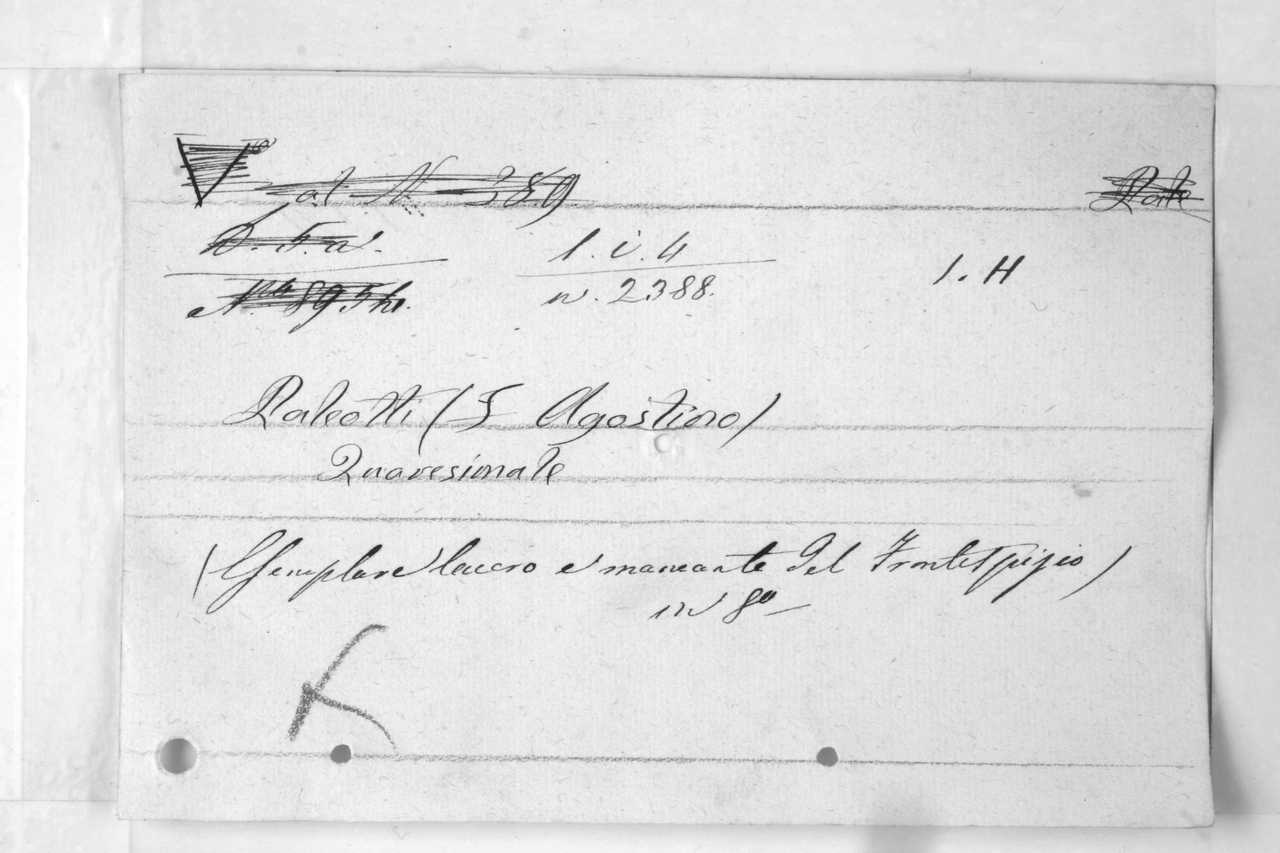 al N 389
1. i. 4
n. 2388.
1. H
Paleotti (F Agostino)
Quaresimale
(Esemplare lacero e mancante del Frontespizio)
in 8º
K